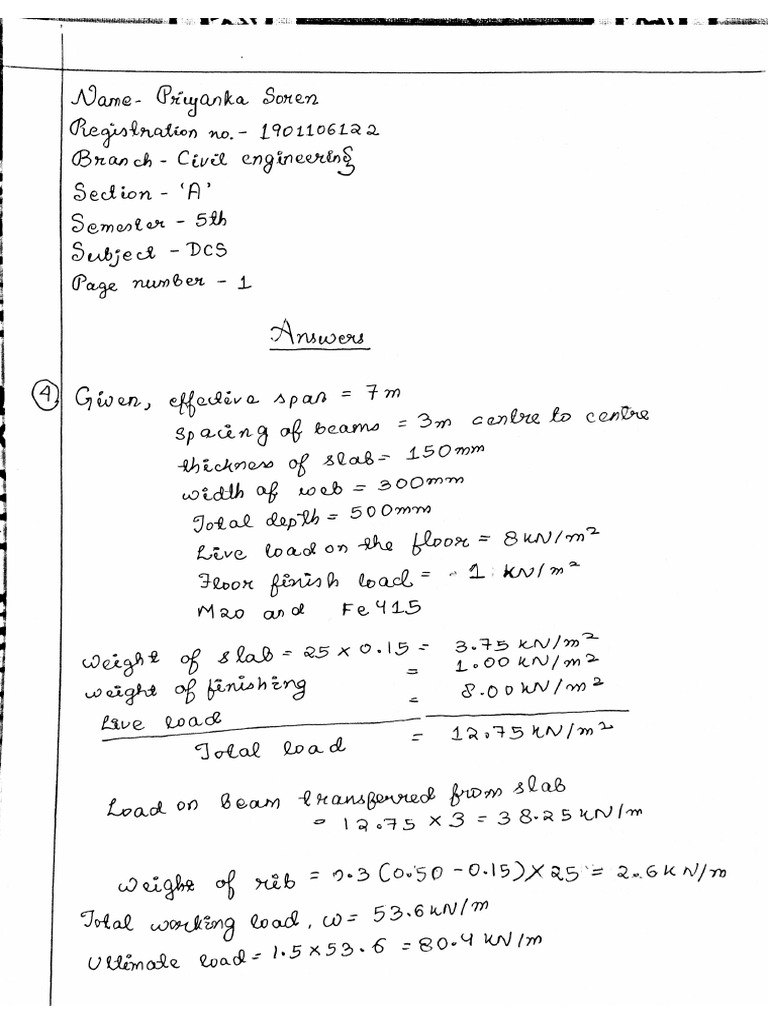 Name- Priyanka Soren
Registration no.- 1901106122
Branch - Civil engineering
Section - 'A'
Semester - 5th
Subject - DCS
Page number - 1
Answers
4 Given, effective span = 7m
spacing of beams = 3m centre to centre
thickness of slab = 150mm
width of web = 300mm
Total depth = 500mm
Live load on the floor = 8 kN/m²
Floor finish load = 1 kN/m²
M20 and Fe415
weight of slab = 25 x 0.15 = 3.75 kN/m²
weight of finishing = 1.00 kN/m²
Live load = 8.00 kN/m²
Total load = 12.75 kN/m²
Load on beam transferred from slab
= 12.75 x 3 = 38.25 kN/m
Weight of rib = 0.3 (0.50 - 0.15) x 25 = 2.6 kN/m
Total working load, w = 53.6 kN/m
Ultimate load = 1.5 x 53.6 = 80.4 kN/m